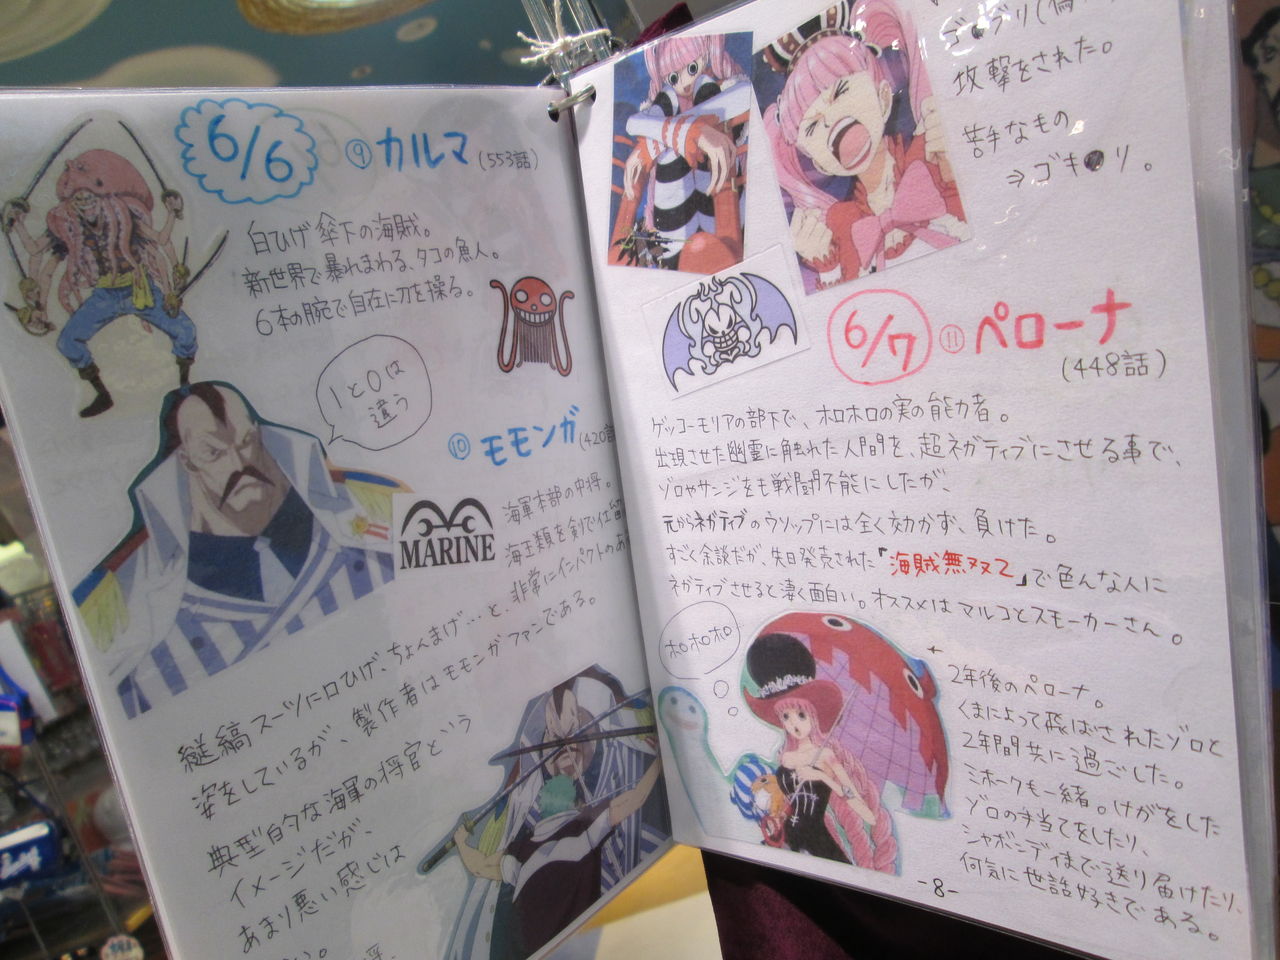 6/6
⑨ カルマ (553話)
白ひげ傘下の海賊。
新世界で暴れまわる、タコの魚人。
6本の腕で自在に刀を操る。
1と0は
違う
⑩ モモンガ (420話
MARINE
海軍本部の中将。
海王類を剣で仕留
非常にインパクトのあ
縦縞スーツに口ひげ、ちょんまげ…と、
姿をしているが、製作者はモモンガファンである。
典型的な海軍の将官という
イメージだが、
あまり悪い感じは
攻撃をされた。
苦手なもの
⇒ゴキ●リ。
6/7
⑪ ペローナ
(448話)
ゲッコーモリアの部下で、ホロホロの実の能力者。
出現させた幽霊に触れた人間を、超ネガティブにさせる事で、
ゾロやサンジをも戦闘不能にしたが、
元からネガティブのウソップには全く効かず、負けた。
すごく余談だが、先日発売された「海賊無双2」で色んな人に
ネガティブさせると凄く面白い。オススメはマルコとスモーカーさん。
ホロホロホロ
2年後のペローナ。
くまによって飛ばされたゾロと
2年間共に過ごした。
ミホークも一緒。けがをした
ゾロの手当てをしたり、
シャボンディまで送り届けたり、
何気に世話好きである。
-8-